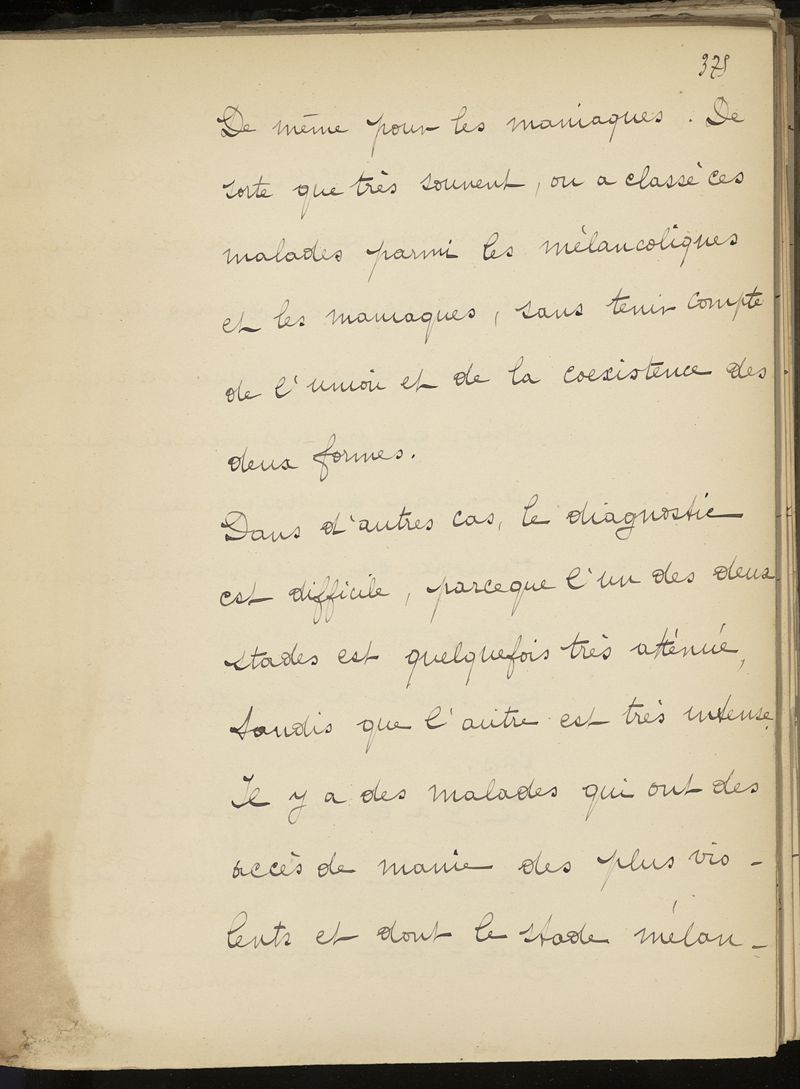 375
De même pour les maniaques. De
sorte que très souvent, on a classé ces
malades parmi les mélancoliques
et les maniaques, sans tenir compte
de l'union et de la coexistence des
deux formes.
Dans d'autres cas, le diagnostic
est difficile, parceque l'un des deux
stades est quelquefois très atténué,
tandis que l'autre est très intense.
Il y a des malades qui ont des
accès de manie des plus vio-
lents et dont le stade mélan-